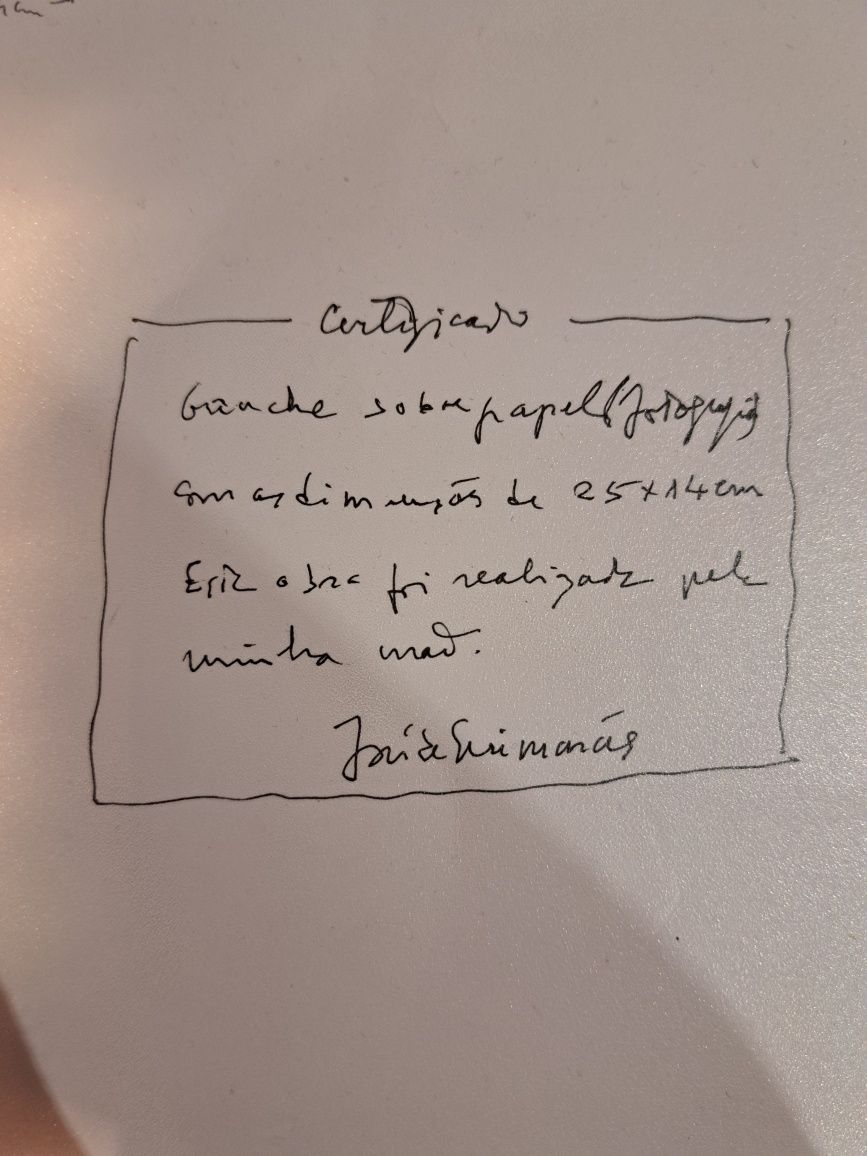 Certificado
Guache sobre papel (fotografia)
com as dimensões de 25x14cm
Esta obra foi realizada pela
minha mão.
José de Guimarães